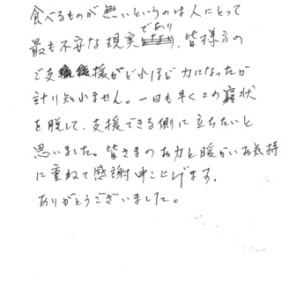 食べるものが無いというのは人にとって
最も不安な現実であり、皆様方の
ご支援がどれほど力になったか
計り知れません。一日も早くこの窮状
を脱して、支援できる側に立ちたいと
思いました。皆さまのお力と暖かいお気持
に重ねて感謝申し上げます。
ありがとうございました。